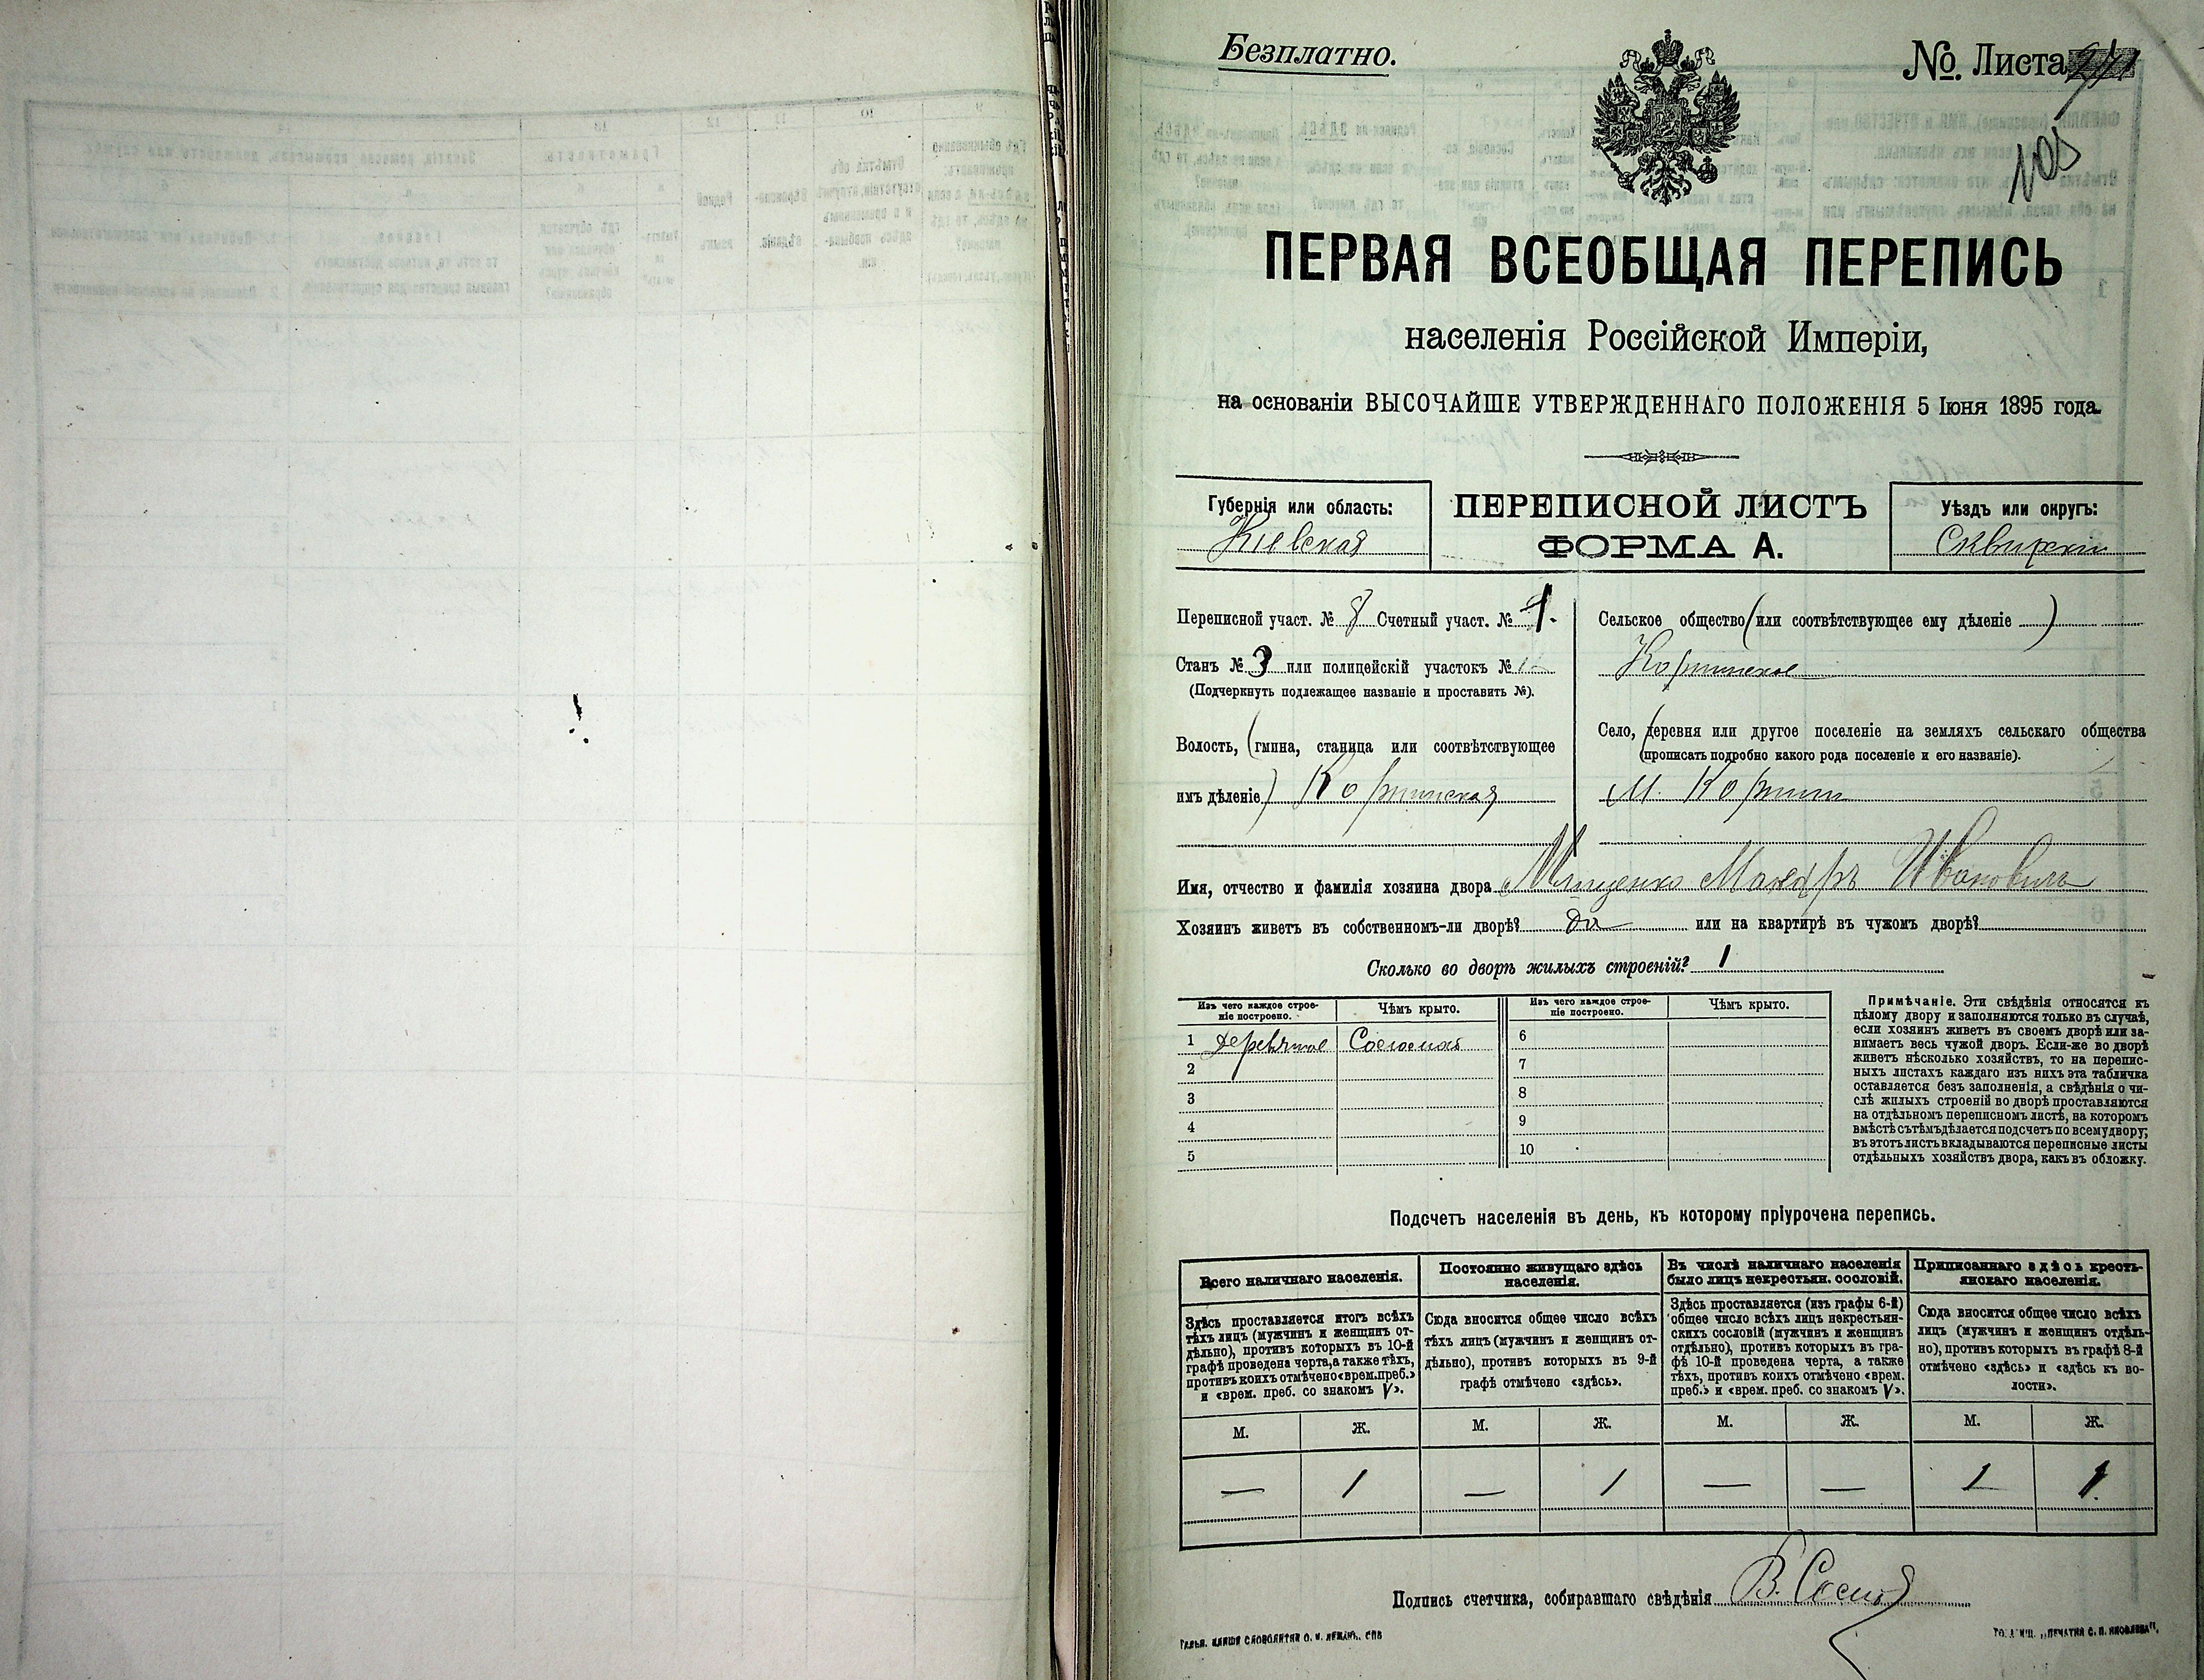 Безплатно.
№. Листа
105
ПЕРВАЯ ВСЕОБЩАЯ ПЕРЕПИСЬ
населенія Россійской Имперіи,
на основаніи ВЫСОЧАЙШЕ УТВЕРЖДЕННАГО ПОЛОЖЕНІЯ 5 Іюня 1895 года.
Губернія или область:
Кіевская
ПЕРЕПИСНОЙ ЛИСТЪ
ФОРМА А.
Уѣздъ или округъ:
Сквирскій
Переписной участ. № 8 Счетный участ. № 1.
Станъ № 3 или полицейскій участокъ №
(Подчеркнуть подлежащее названіе и проставить №).
Волость, (гмина, станица или соотвѣтствующее
имъ дѣленіе) Корнинская
Сельское общество (или соотвѣтствующее ему дѣленіе)
Корнинское
Село, (деревня или другое поселеніе на земляхъ сельскаго общества
(прописать подробно какого рода поселеніе и его названіе).
М. Корнин
Имя, отчество и фамилія хозяина двора Макаръ Ивановичъ
Хозяинъ живетъ въ собственномъ-ли дворѣ? да или на квартирѣ въ чужомъ дворѣ?
Сколько во дворѣ жилыхъ строеній? 1
Изъ чего каждое строе-
ніе построено.
Чѣмъ крыто.
1 деревяное Соломой
2
3
4
5
Изъ чего каждое строе-
ніе построено.
Чѣмъ крыто.
6
7
8
9
10
Примѣчаніе. Эти свѣдѣнія относятся къ
цѣлому двору и заполняются только въ случаѣ,
если хозяинъ живетъ въ своемъ дворѣ или за-
нимаетъ весь чужой дворъ. Если-же во дворѣ
живетъ нѣсколько хозяйствъ, то на перепис-
ныхъ листахъ каждаго изъ нихъ эта табличка
оставляется безъ заполненія, а свѣдѣнія о чи-
слѣ жилыхъ строеній во дворѣ проставляются
на отдѣльномъ переписномъ листѣ, на которомъ
вмѣстѣ съ тѣмъ дѣлается подсчетъ по всему двору;
въ этотъ листъ вкладываются переписные листы
отдѣльныхъ хозяйствъ двора, какъ въ обложку.
Подсчетъ населенія въ день, къ которому пріурочена перепись.
Всего наличнаго населенія.
Здѣсь проставляется итогъ всѣхъ
тѣхъ лицъ (мужчинъ и женщинъ от-
дѣльно), противъ которыхъ въ 10-й
графѣ проведена черта, а также тѣхъ,
противъ коихъ отмѣчено «врем. преб.»
и «врем. преб. со знакомъ V».
М. Ж.
— 1
Постоянно живущаго здѣсь
населенія.
Сюда вносится общее число всѣхъ
тѣхъ лицъ (мужчинъ и женщинъ от-
дѣльно), противъ которыхъ въ 9-й
графѣ отмѣчено «здѣсь».
М. Ж.
— 1
Въ числѣ наличнаго населенія
было лицъ некрестьян. сословій.
Здѣсь проставляется (изъ графы 6-й)
общее число всѣхъ лицъ некрестьян-
скихъ сословій (мужчинъ и женщинъ
отдѣльно), противъ которыхъ въ гра-
фѣ 10-й проведена черта, а также
тѣхъ, противъ коихъ отмѣчено «врем.
преб.» и «врем. преб. со знакомъ V».
М. Ж.
— —
Приписаннаго здѣсь кресть-
янскаго населенія.
Сюда вносится общее число всѣхъ
лицъ (мужчинъ и женщинъ отдѣль-
но), противъ которыхъ въ графѣ 8-й
отмѣчено «здѣсь» и «здѣсь къ во-
лости».
М. Ж.
1 1
Подпись счетчика, собиравшаго свѣдѣнія В.
СЛОВОЛИТНИ О. И. ЛЕМАНЪ. СПБ
„ПЕЧАТНЯ С. П. ЯКОВЛЕВА".